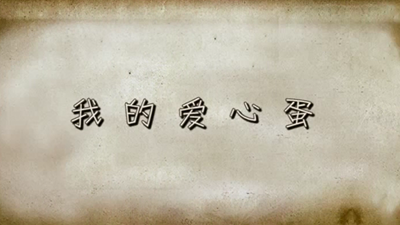 我的爱心蛋